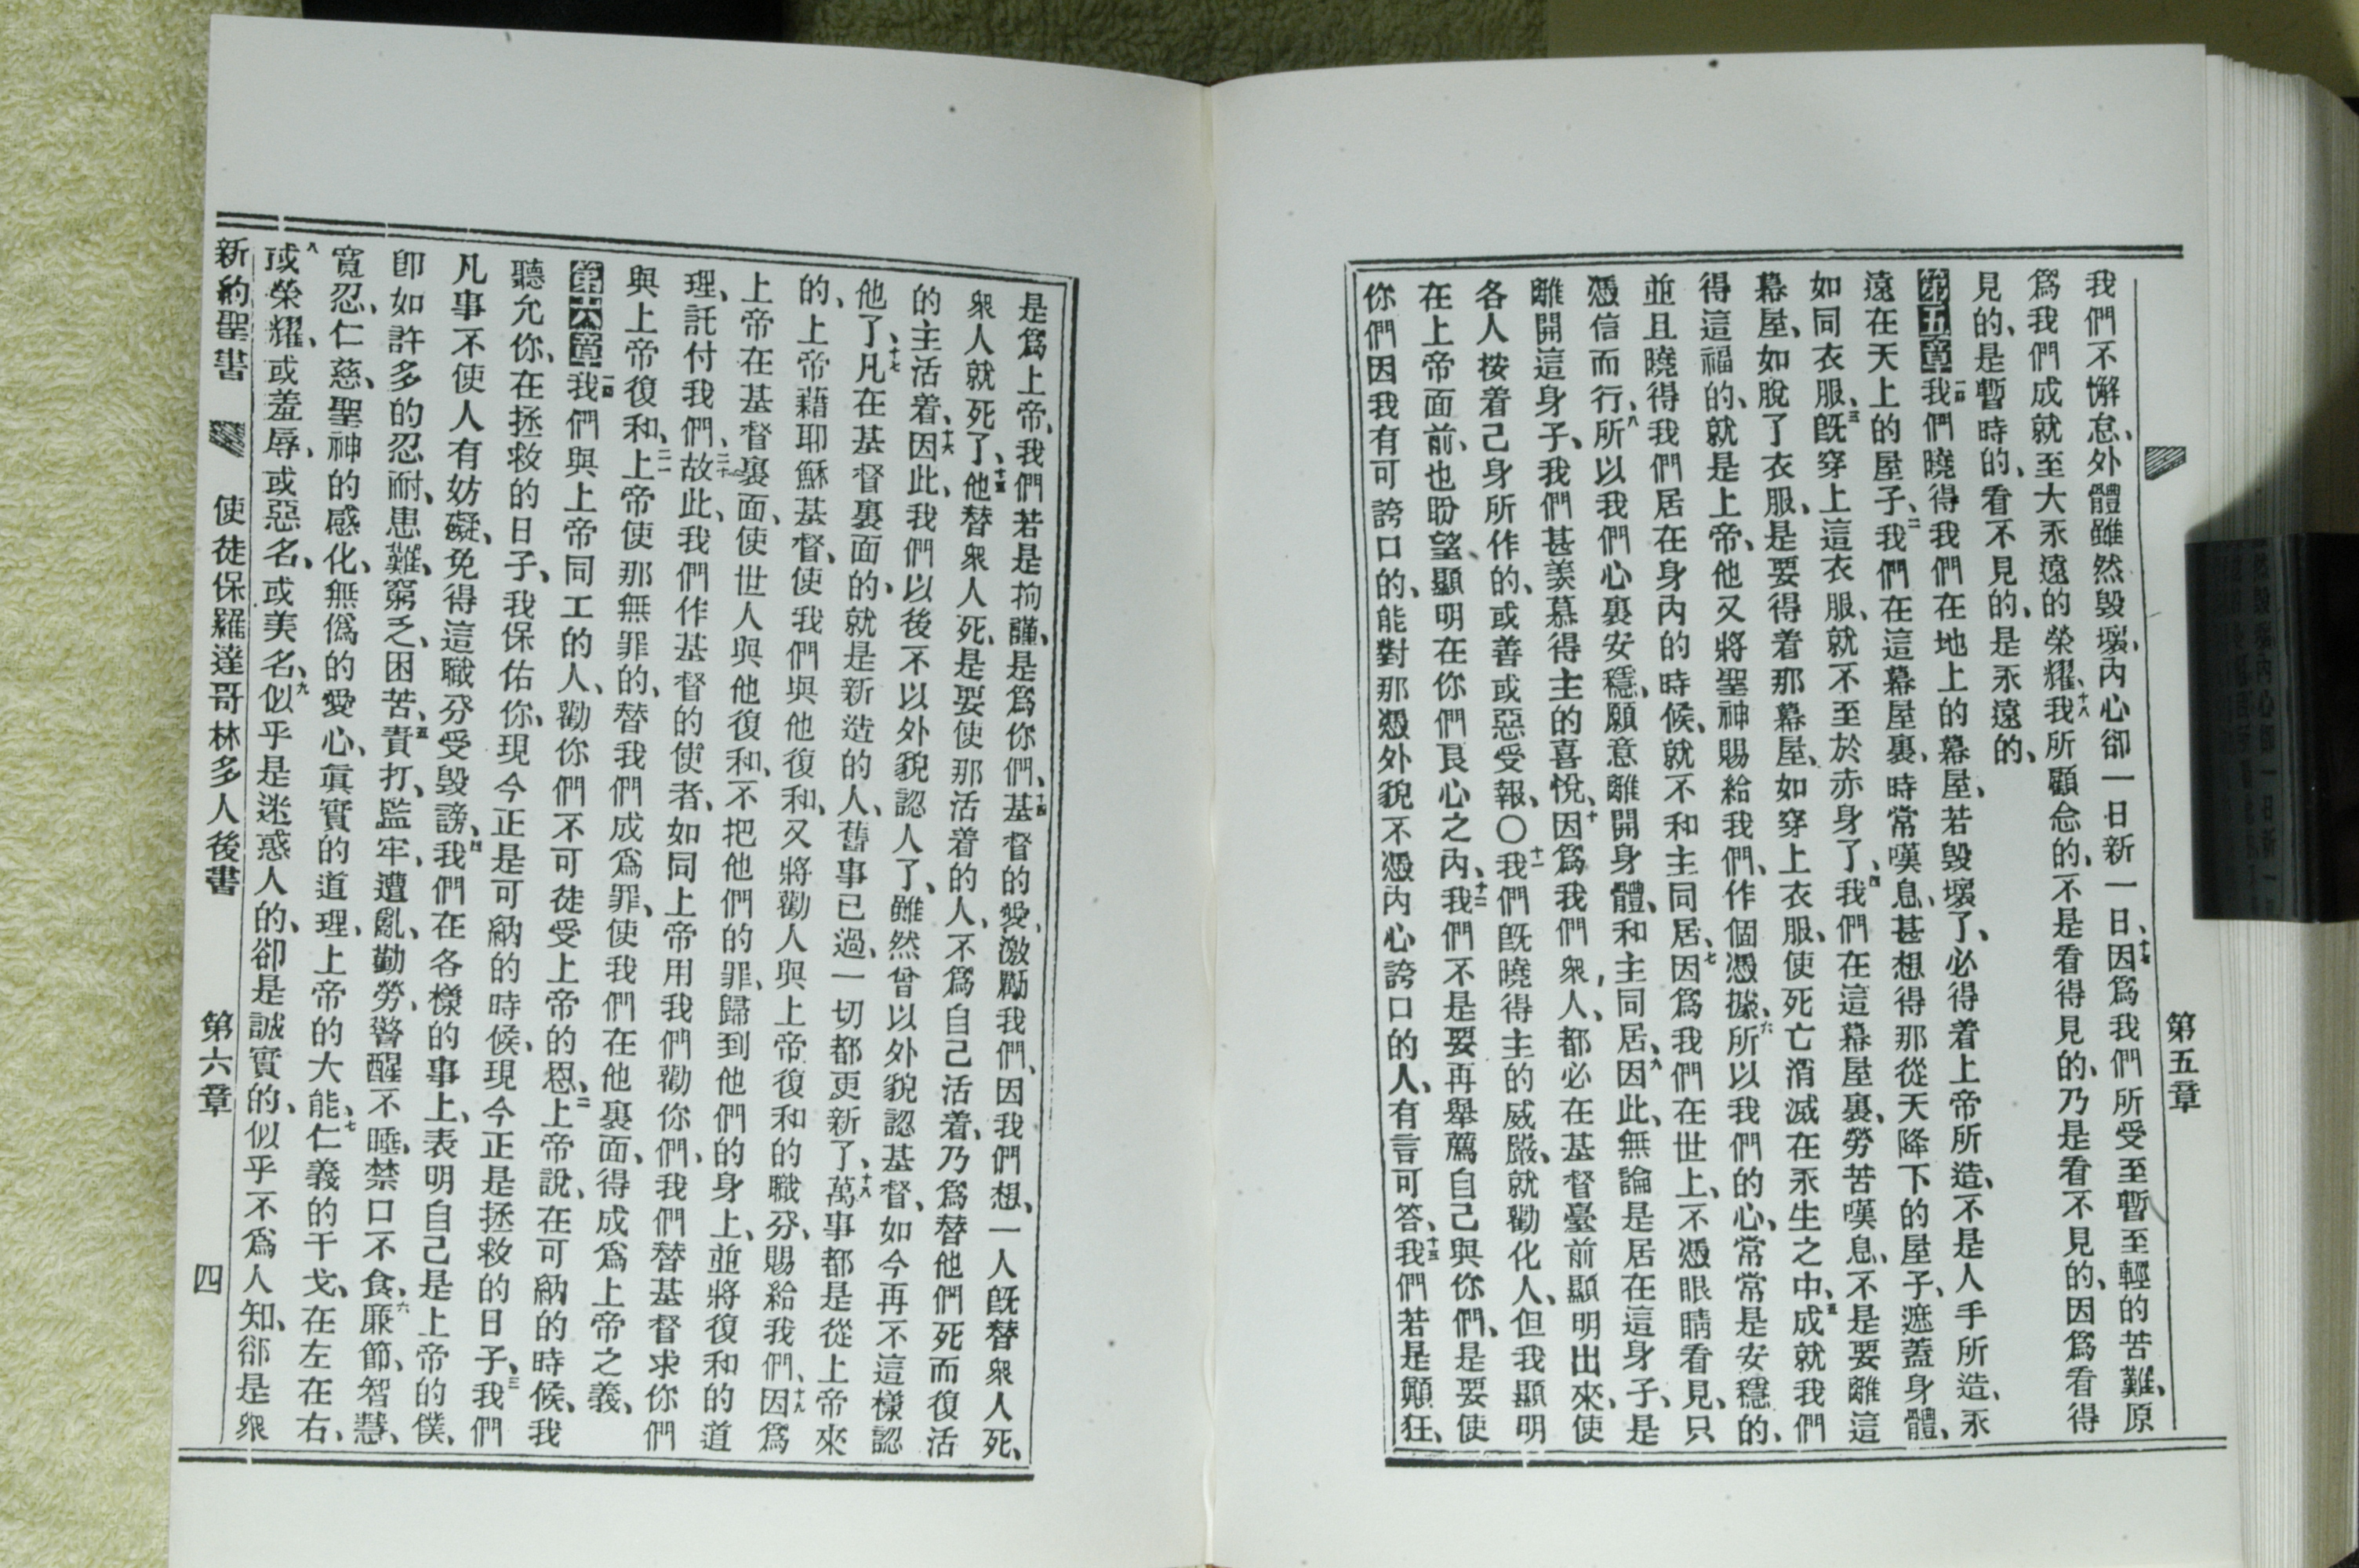 第五章
我們不懈怠、外體雖然毀壞、內心卻一日新一日、十七因爲我們所受至暫至輕的苦難、原
爲我們成就至大永遠的榮耀、十八我所顧念的、不是看得見的、乃是看不見的、因爲看得
見的、是暫時的、看不見的、是永遠的、
第五章一我們曉得我們在地上的幕屋、若毀壞了、必得着上帝所造、不是人手所造、永
遠在天上的屋子、二我們在這幕屋裏、時常嘆息、甚想得那從天降下的屋子、遮蓋身體、
如同衣服、三旣穿上這衣服、就不至於赤身了、四我們在這幕屋裏、勞苦嘆息、不是要離這
幕屋、如脫了衣服、是要得着那幕屋、如穿上衣服、使死亡消滅在永生之中、五成就我們
得這福的、就是上帝、他又將聖神賜給我們、作個憑據、六所以我們的心、常常是安穩的、
並且曉得我們居在身內的時候、就不和主同居、七因爲我們在世上、不憑眼睛看見、只
憑信而行、八所以我們心裏安穩、願意離開身體、和主同居、九因此、無論是居在這身子、是
離開這身子、我們甚羨慕得主的喜悅、十因爲我們衆人、都必在基督臺前顯明出來、使
各人按着己身所作的、或善或惡受報、〇十一我們旣曉得主的威嚴、就勸化人、但我顯明
在上帝面前、也盼望、顯明在你們良心之內、十二我們不是要再舉薦自己與你們、是要使
你們因我有可誇口的、能對那憑外貌不憑內心誇口的人、有言可答、十三我們若是顚狂、
是爲上帝、我們若是拘謹、是爲你們、十四基督的愛、激勵我們、因我們想、一人旣替衆人死、
衆人就死了、十五他替衆人死、是要使那活着的人、不爲自己活着、乃爲替他們死而復活
的主活着、十六因此、我們以後不以外貌認人了、雖然曾以外貌認基督、如今再不這樣認
他了、十七凡在基督裏面的、就是新造的人、舊事已過、一切都更新了、十八萬事都是從上帝來
的、上帝藉耶穌基督、使我們與他復和、又將勸人與上帝復和的職分、賜給我們、十九因爲
上帝在基督裏面、使世人與他復和、不把他們的罪、歸到他們的身上、並將復和的道
理、託付我們、二十故此、我們作基督的使者、如同上帝用我們勸你們、我們替基督求你們
與上帝復和、二一上帝使那無罪的、替我們成爲罪、使我們在他裏面、得成爲上帝之義、
第六章一我們與上帝同工的人、勸你們不可徒受上帝的恩、二上帝說、在可納的時候、我
聽允你、在拯救的日子、我保佑你、現今正是可納的時候、現今正是拯救的日子、三我們
凡事不使人有妨礙、免得這職分受毀謗、四我們在各樣的事上、表明自己是上帝的僕、
卽如許多的忍耐、患難、窮乏、困苦、五責打、監牢、遭亂、勤勞、警醒不睡、禁口不食、六廉節、智慧、
寬忍、仁慈、聖神的感化、無僞的愛心、眞實的道理、上帝的大能、七仁義的干戈、在左在右、
八或榮耀、或羞辱、或惡名、或美名、九似乎是迷惑人的、卻是誠實的、似乎不爲人知、卻是衆
新約聖書 使徒保羅達哥林多人後書 第六章 四